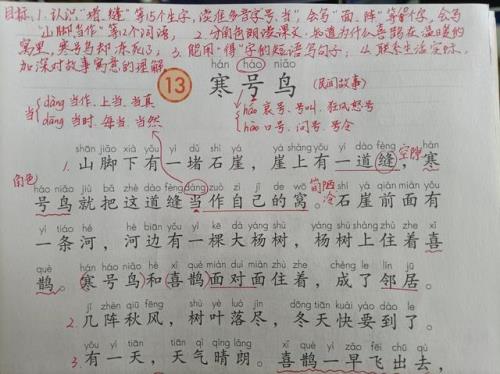 目标:1.认识“堵、缝”等15个生字,读准多音字“号、当”,会写“面、阵”等8个字,会写
“山脚、当作”等12个词语。 2.分角色朗读课文,知道为什么喜鹊在温暖的
窝里,寒号鸟却冻死了。3.能用“得”字的短语写句子。4.联系生活实际,
加深对故事寓意的理解。
hán háo niǎo
13 寒号鸟 (民间故事)
当 dàng 当作、上当、当真
dāng 当时、每当、当然
号 háo 哀号、号叫、狂风怒号
hào 口号、问号、号令
shān jiǎo xià yǒu yì dǔ shí yá yá shàng yǒu yí dào fèng hán
1. 山脚下有一堵石崖,崖上有一道缝,寒
空隙
角色
háo niǎo jiù bǎ zhè dào fèng dàng zuò zì jǐ de wō shí yá qián mian yǒu
号鸟就把这道缝当作自己的窝。石崖前面有
yì tiáo hé hé biān yǒu yì kē dà yáng shù yáng shù shang zhù zhe xǐ
一条河,河边有一棵大杨树,杨树上住着喜
què hán háo niǎo hé xǐ què miàn duì miàn zhù zhe chéng le lín jū
鹊。寒号鸟和喜鹊面对面住着,成了邻居。
jǐ zhèn qiū fēng shù yè luò jìn dōng tiān kuài yào dào le
2. 几阵秋风,树叶落尽,冬天快要到了。
yǒu yì tiān tiān qì qíng lǎng xǐ què yì zǎo fēi chū qù
3. 有一天,天气晴朗。喜鹊一早飞出去,